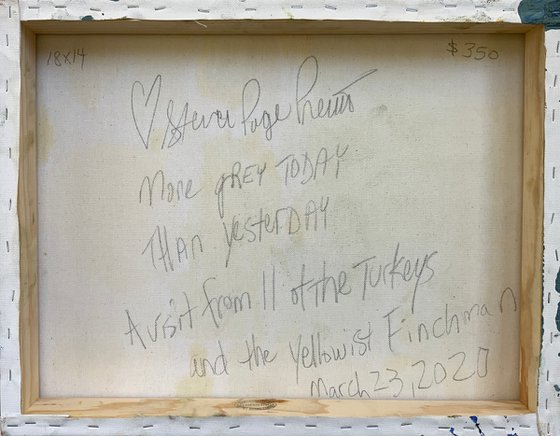 18x14
$350
♡ Steven Page Prewitt
More gREY TODAY
THan YesterDAY
A visit from 11 of the Turkeys
and the Yellowist Finchman
March 23, 2020